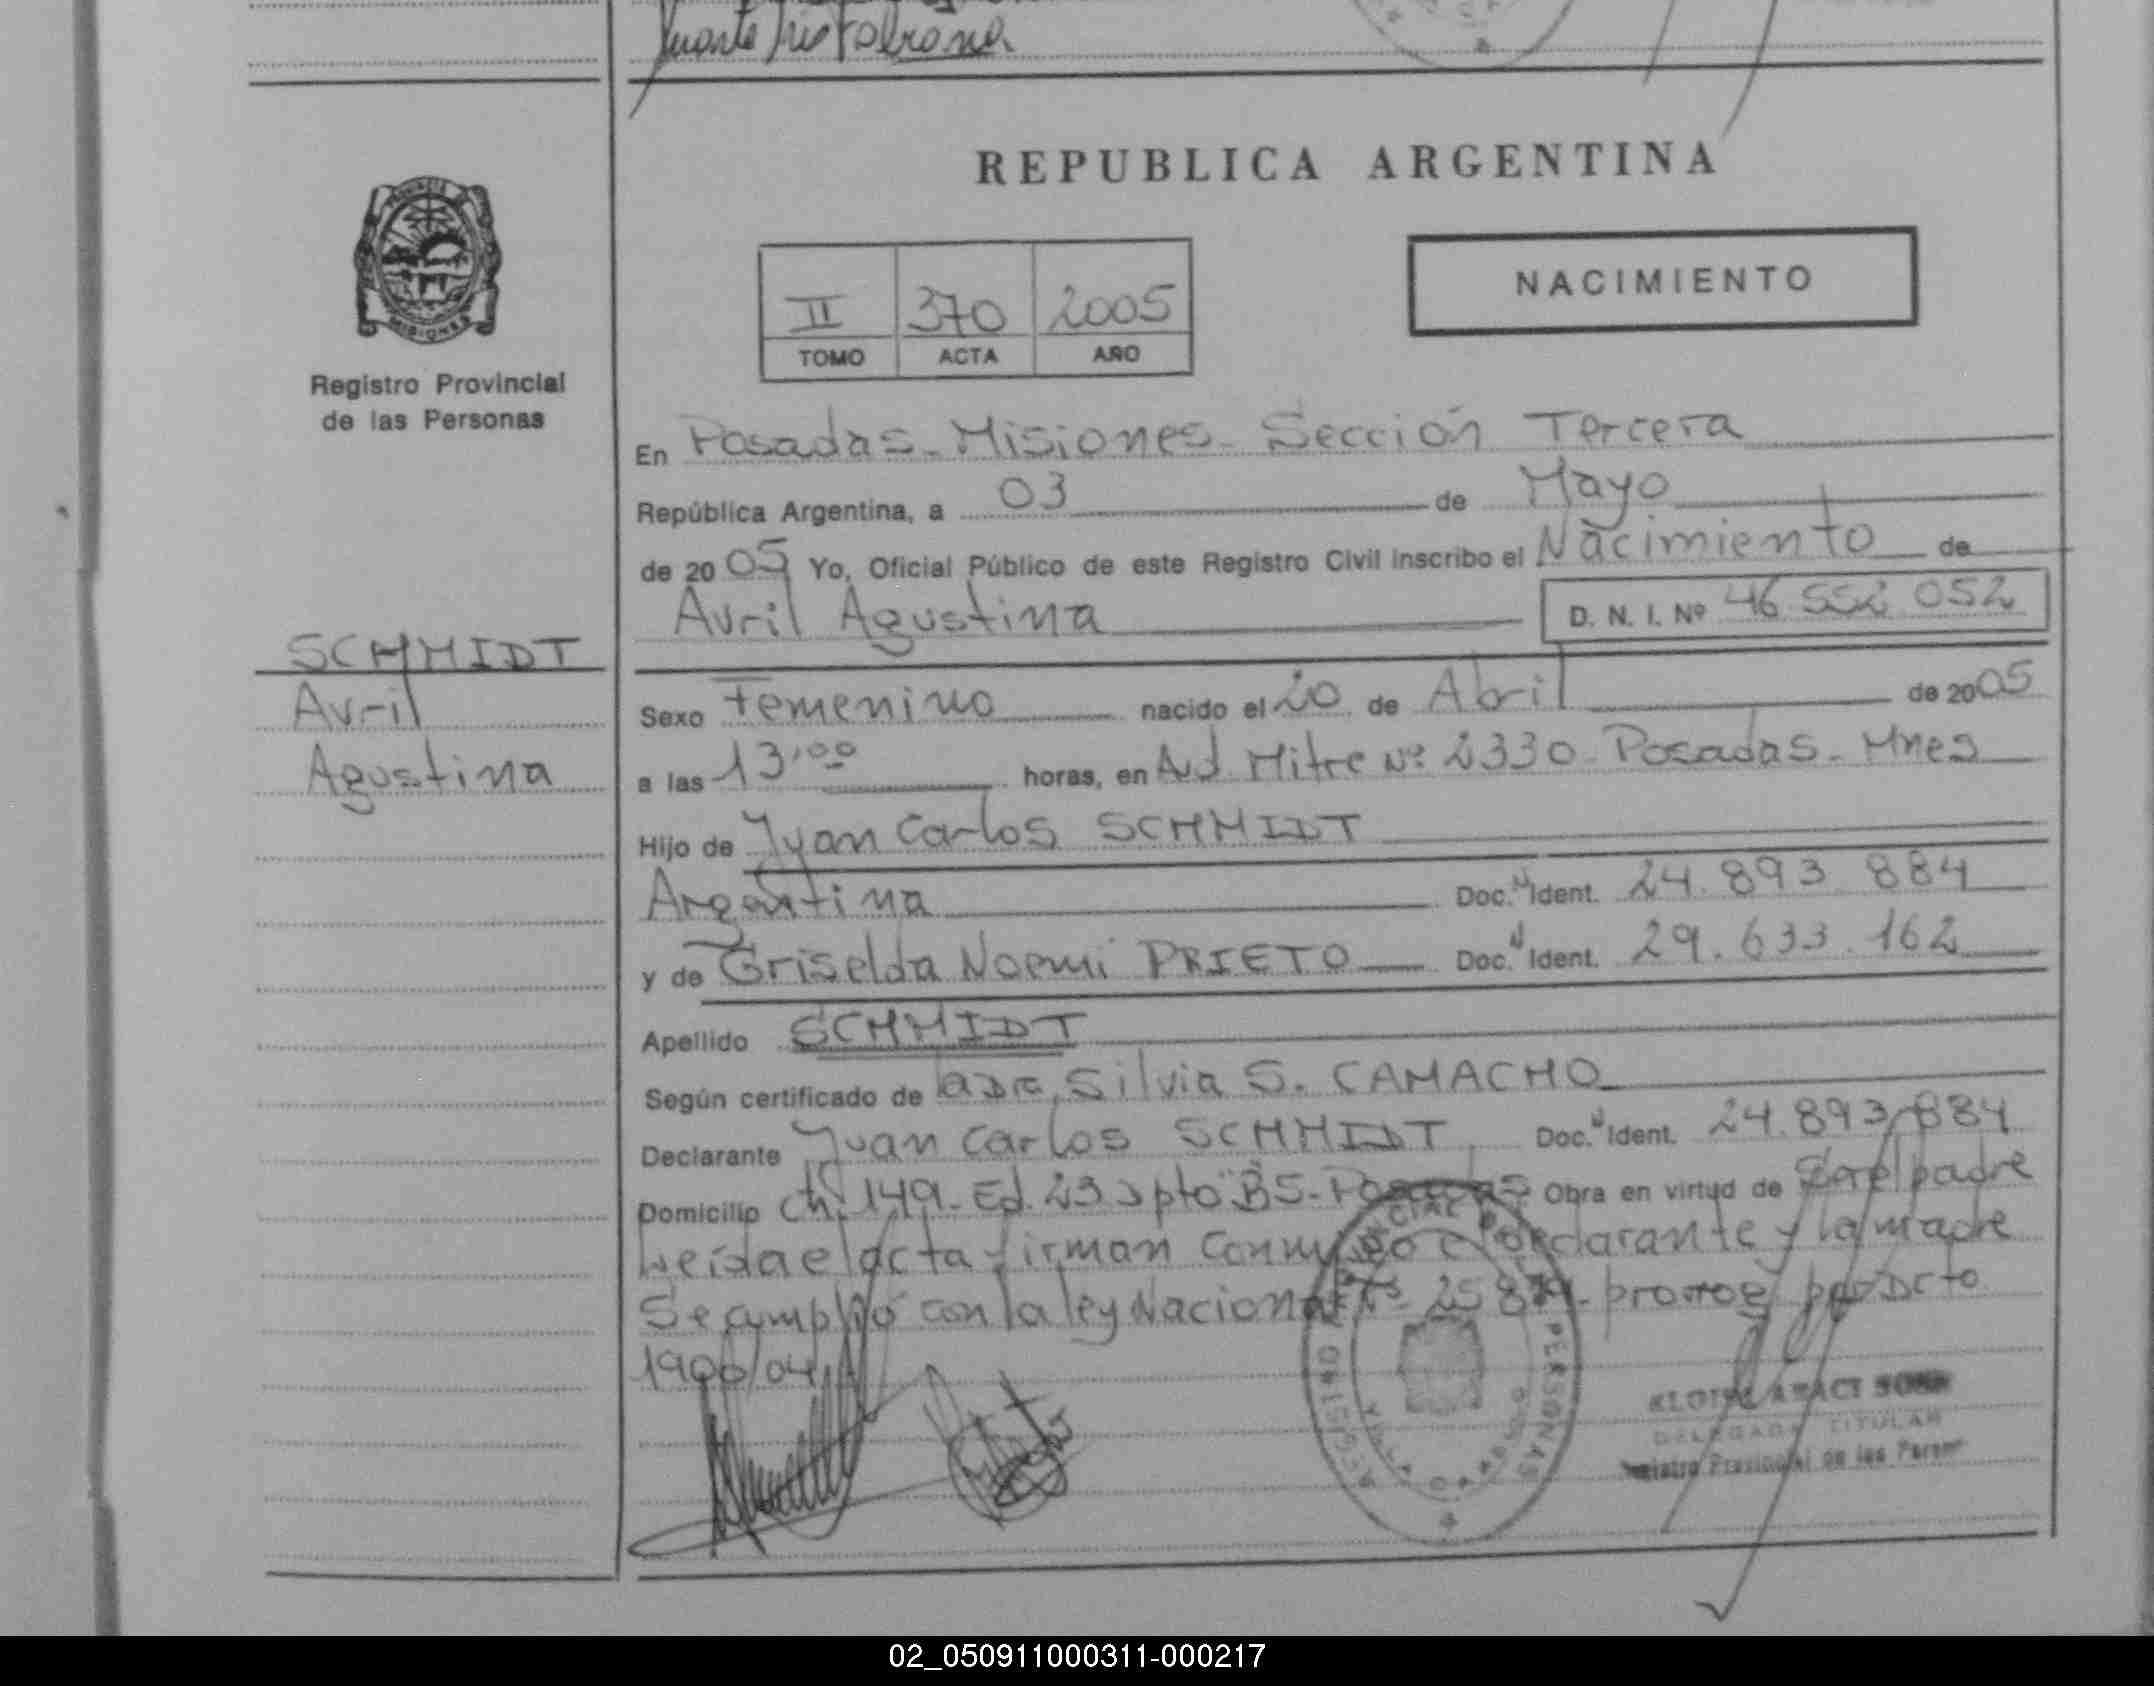 REPUBLICA ARGENTINA
MISIONES
Registro Provincial
de las Personas
II 370 2005
TOMO ACTA AÑO
NACIMIENTO
En Posadas - Misiones - Sección Tercera
República Argentina, a 03 de Mayo
de 20 05 Yo, Oficial Público de este Registro Civil inscribo el Nacimiento de
Avril Agustina D. N. I. Nº 46 552 052
SCHMIDT
Avril
Agustina
Sexo Femenino nacido el 20 de Abril de 20 05
a las 13,00 horas, en Avd. Mitre Nº 2330 Posadas - Mnes
Hijo de Juan Carlos SCHMIDT
Argentina Doc. N Ident. 24.893 884
y de Griselda Noemi PRIETO Doc. N Ident. 29.633.162
Apellido SCHMIDT
Según certificado de la Dra. Silvia S. CAMACHO
Declarante Juan Carlos SCHMIDT, Doc. N Ident. 24.893.884
Domicilio Ch. 149 - Ed. 23 Dpto "B5 - Posadas Obra en virtud de Ser el padre
Leída el acta firman conmigo el declarante y la madre
Se cumplió con la ley Nacional Nº 25 819 - prorrog por Dcto
1900/04
DELEGADA TITULAR
Registro Provincial de las Person
02_050911000311-000217